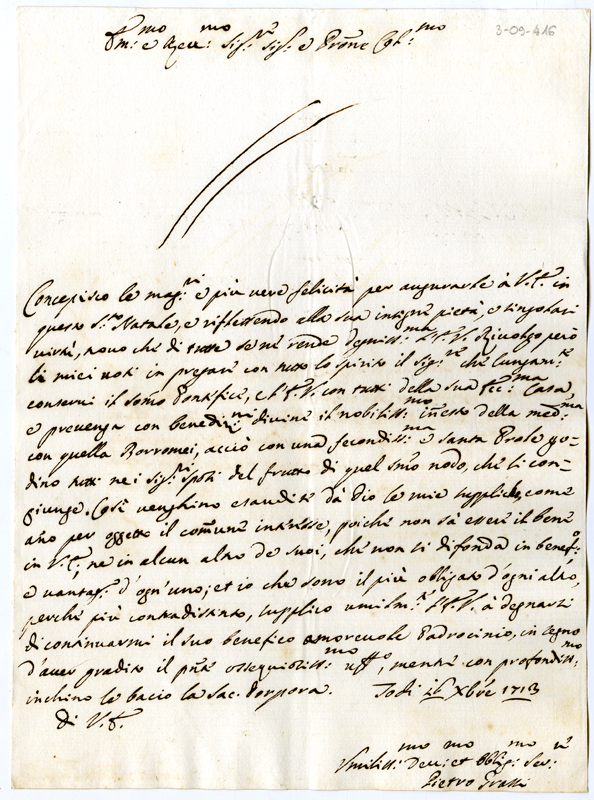 3-09-416
Em:mo e Rev:mo Sig.r Sig.r e Prone Col:mo
Concepisco le mag.ri e più vere felicità per augurarle à V.E. in
questo S.to Natale, e riflettendo alla sua insigne pietà, e singolari
virtù, trovo che di tutte se ne rende degniss:ma l'E.V. Rivolgo però
li miei voti in pregare con tutto lo spirito il Sig.re che lungam.te
conservi il somo Pontefice, e l'E.V. con tutti della sua Ecc:ma Casa
e prevenga con benediz:ni divine il nobiliss:mo inesto della med:ma
con quella Borromei, acciò con una fecondiss:ma e santa Prole go-
dino tutti ne i Sig.ri sposi del frutto di quel smo nodo, che li con-
giunge. Così venghino esaudite dà Dio le mie suppliche, come
ano per oggetto il comune interesse, poiche non sà essere il bene
in V.E., ne in alcun altro de suoi, che non si difonda in benef.o,
e vantag.o d'ogn'uno; et io che sono il più obligato d'ogni altro,
perche più contradistinto, supplico umilm.te l'E.V. à degnarsi
di continuarmi il suo benefico amorevole Padrocinio, in segno
d'aver gradito il pnte ossequiosiss:mo uff.o, mentre con profondiss:mo
inchino le bacio la sac. Porpora. Todi 16 Xbre 1713
di V.E.
Umiliss:mo Dev:mo et Oblig:mo Ser.re
Pietro Grassi